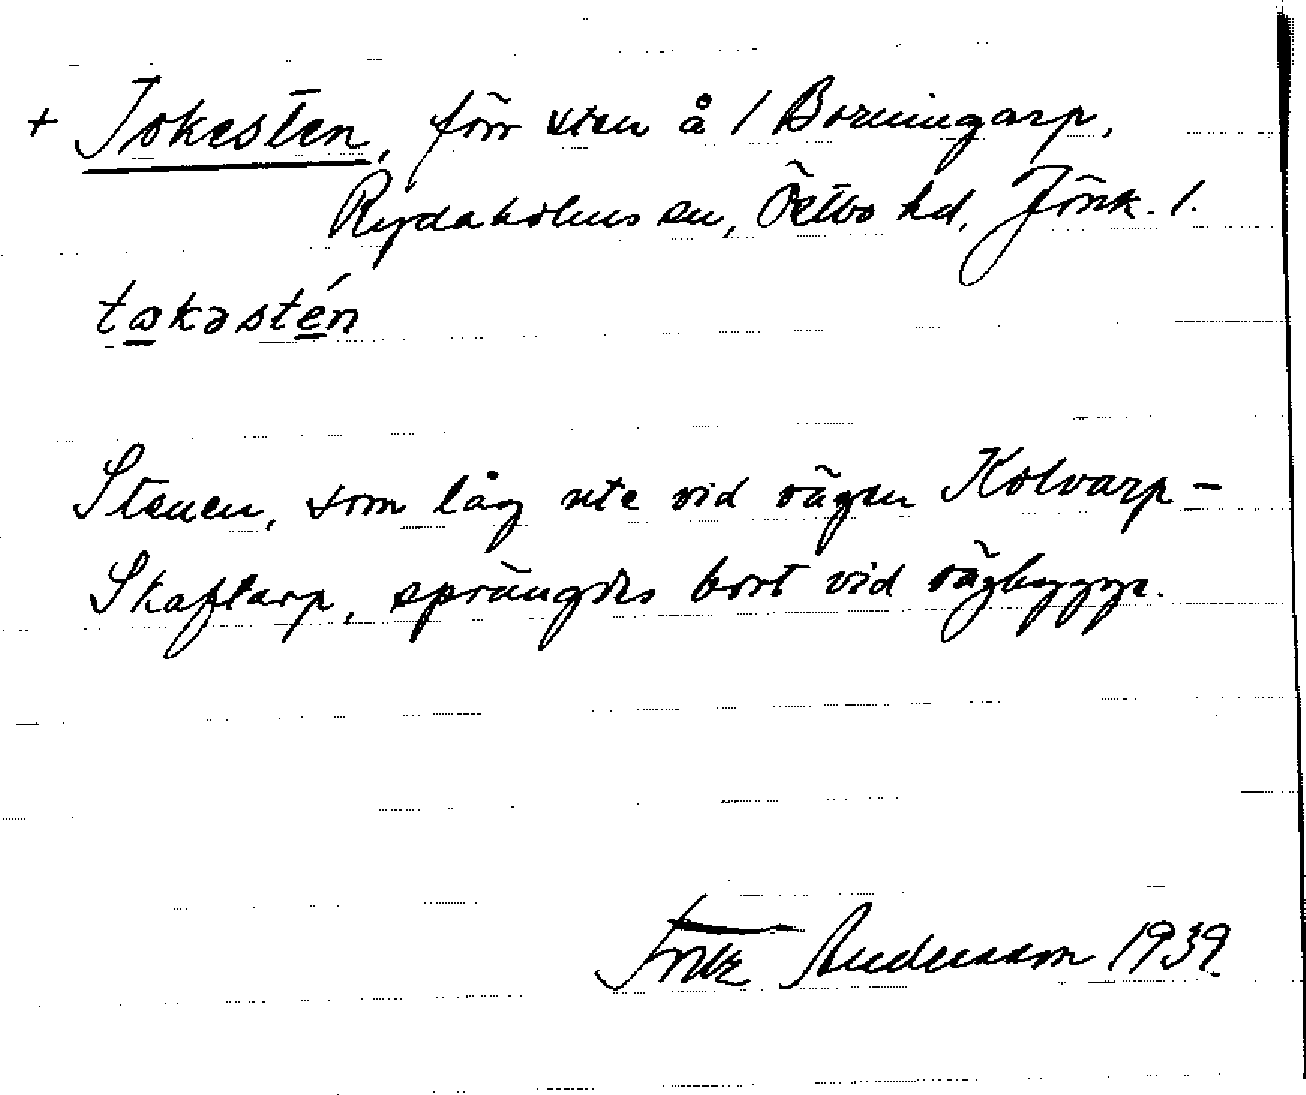 + Tokesten, förr sten å 1 Borningarp,
Rydaholms sn, Östbo hd, Jönk. l.
takəstén
Stenen, som låg ute vid vägen Kolvarp -
Skaftarp, sprängdes bort vid vägbygge.
Fritz Andersson 1939